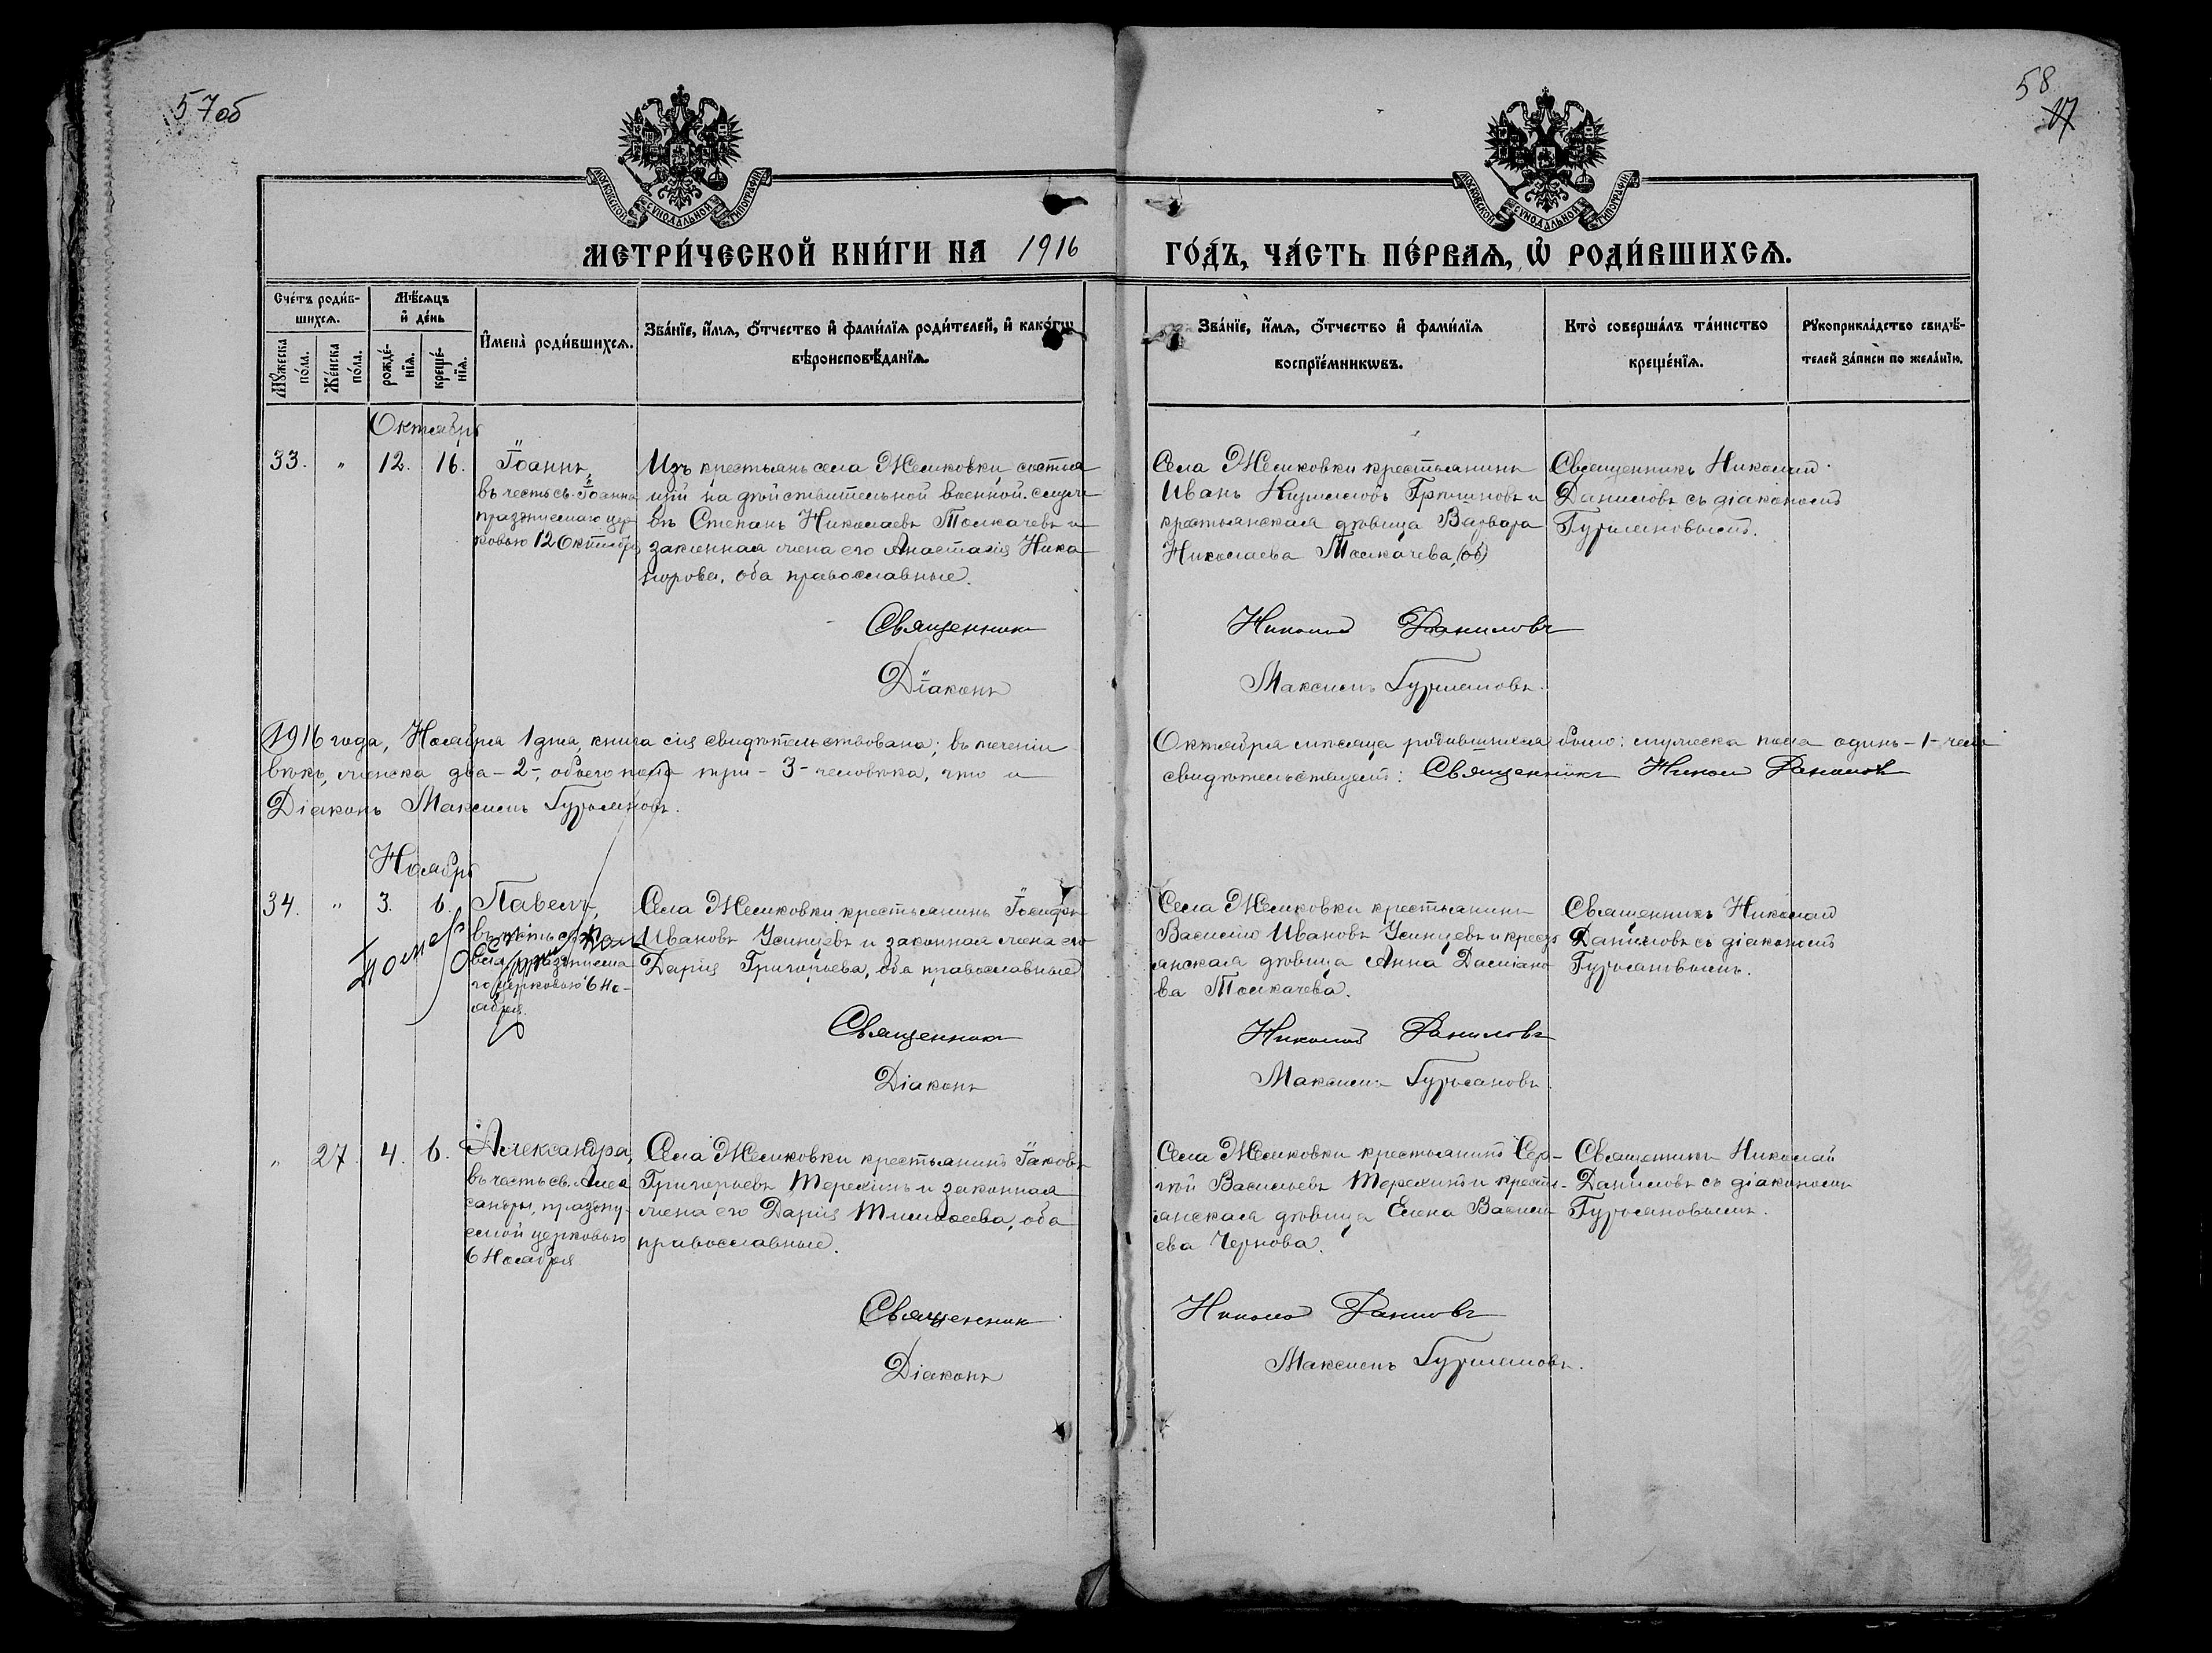 57об
58
17
МОСКОВСКОЙ СУНОДАЛЬНОЙ ТИПОГРАФІИ
МОСКОВСКОЙ СУНОДАЛЬНОЙ ТИПОГРАФІИ
МЕТРИ́ЧЕСКОЙ КНИ́ГИ НА 1916 ГО́ДЪ, ЧА́СТЬ ПЕ́РВАѦ, Ѡ РОДИ́ВШИХСѦ.
Сче́тъ роди́в-
шихсѧ.
Мꙋжеска
по́ла.
Же́нска
по́ла.
Мѣ́сѧцъ
и҆ де́нь
рожде́-
нїѧ.
креще́-
нїѧ.
И҆мена̀ роди́вшихсѧ.
Зва́нїе, и҆́мѧ, о҆́тчество и҆ фами́лїѧ роди́телей, и҆ како́гѡ
вѣроисповѣ́данїѧ.
Зва́нїе, и҆́мѧ, о҆́тчество и҆ фами́лїѧ
воспрїе́мникѡвъ.
Кто̀ соверша́лъ та́инство
креще́нїѧ.
Рꙋкоприкла́дство свидѣ́-
телей за́писи по жела́нїю.
Октябрь
33. " 12. 16. Іоаннъ,
въ честь св. Іоанна
празднуемаго цер-
ковью 12 Октября
Изъ крестьянъ села Жемковки состоя
щій на дѣйствительной военной службѣ
Степанъ Николаевъ Толкачевъ и
законная жена его Анастасія Ника
норова, оба православные.
Села Жемковки крестьянинъ
Иванъ
крестьянская дѣвица Варвара
Николаева Толкачева,
Священникъ Николай
Даниловъ съ діакономъ
Гурьяновымъ.
Священникъ Николай Даниловъ
Діаконъ Максимъ Гурьяновъ.
1916 года, Ноября 1 дня, книга сія свидѣтельствована; въ теченіи Октября мѣсяца родившихся было: мужеска пола одинъ - 1 - чело
вѣкъ, женска два - 2 -, обоего пола три - 3 - человѣка, что и свидѣтельствуемъ: Священникъ Николай Даниловъ
Діаконъ Максимъ Гурьяновъ.
Ноябрь
34. " 3. 6. Павелъ,
въ честь св. Пав
ла празднуема
го церковью 6 Но-
ября.
Померъ
Села Жемковки крестьянинъ Іосифъ
Ивановъ Усинцевъ и законная жена его
Дарія Григорьева, оба православные
Села Жемковки крестьянинъ
Василій Ивановъ Усинцевъ и кресть
янская дѣвица Анна Даміано
ва Толкачева.
Священникъ Николай
Даниловъ съ діакономъ
Гурьяновымъ.
Священникъ Николай Даниловъ
Діаконъ Максимъ Гурьяновъ.
" 27. 4. 6. Александра,
въ честь св. Алек
сандры, праздну-
емой церковью
6 Ноября
Села Жемковки крестьянинъ Іаковъ
Григорьевъ Терехинъ и законная
жена его Дарія Тимофеева, оба
православные.
Села Жемковки крестьянинъ Сер-
гѣй Васильевъ Терехинъ и кресть-
янская дѣвица Елена Василь
ева Чернова.
Священникъ Николай
Даниловъ съ діакономъ
Гурьяновымъ.
Священникъ Николай Даниловъ
Діаконъ Максимъ Гурьяновъ.